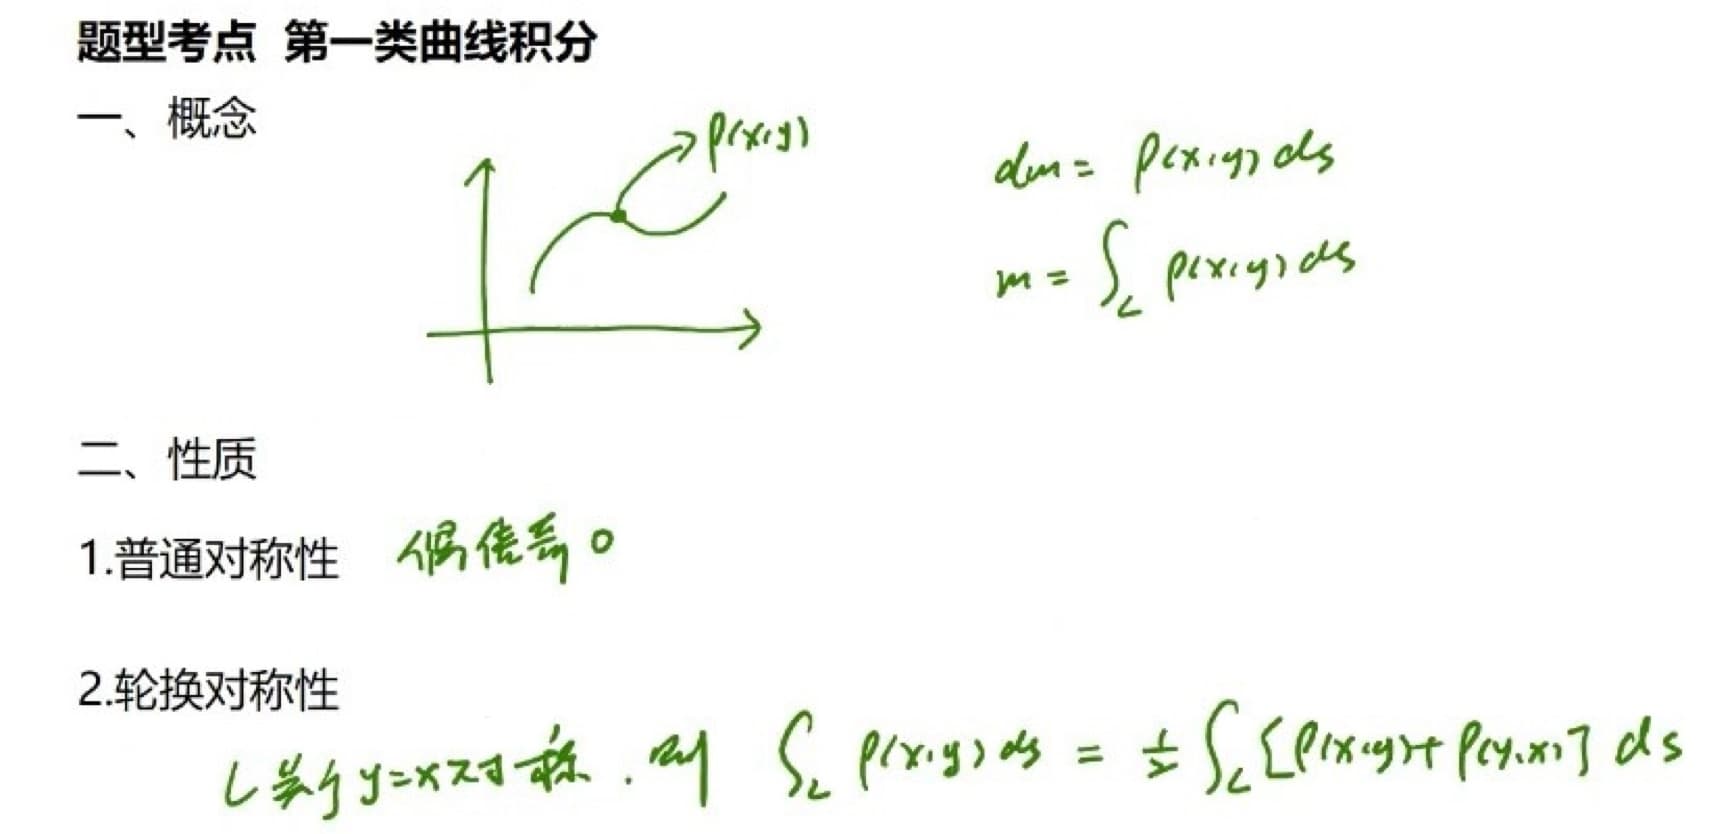 题型考点 第一类曲线积分
一、概念
ρ(x,y)
dm = ρ(x,y) ds
m = ∫_L ρ(x,y) ds
二、性质
1.普通对称性 偶倍奇0
2.轮换对称性
L关于y=x对称.则 ∫_L ρ(x,y) ds = 1/2 ∫_L [ρ(x,y)+ρ(y,x)] ds